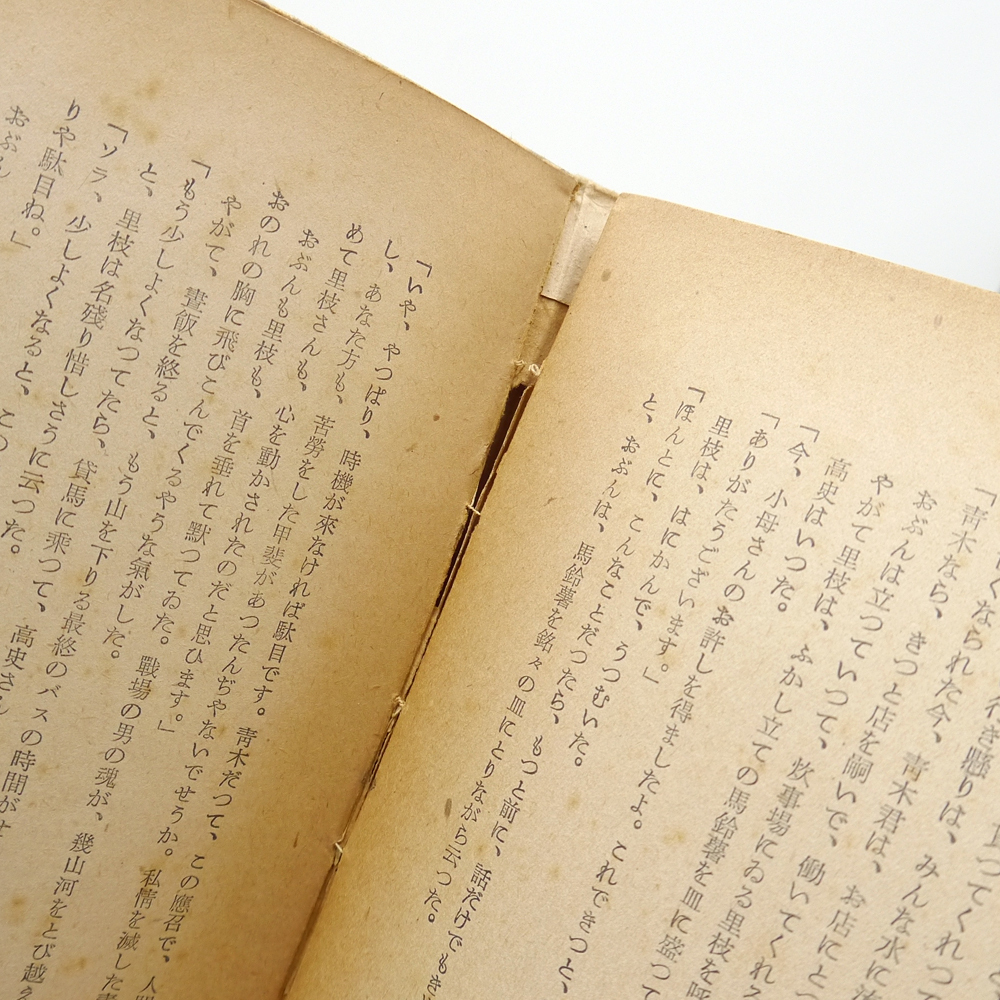 つてくれ
行き懸りは、みんな水に
亡くなられた今、青木君は、お店にと
「青木なら、きつと店を嗣いで、働いてくれる
おぶんは立つていつて、炊事場にゐる里枝を呼
やがて里枝は、ふかし立ての馬鈴薯を皿に盛つて
高史はいつた。
「今、小母さんのお許しを得ましたよ。これできつと、
「ありがたうございます。」
里枝は、はにかんで、うつむいた。
「ほんとに、こんなことだつたら、もつと前に、話だけでもき
と、おぶんは、馬鈴薯を銘々の皿にとりながら云つた。
「いや、やつぱり、時機が來なければ駄目です。青木だつて、この應召で、人間
し、あなた方も、苦勞をした甲斐があつたんぢやないでせうか。私情を滅した青
めて里枝さんも、心を動かされたのだと思ひます。」
おぶんも里枝も、首を垂れて默つてゐた。戰場の男の魂が、幾山河をとび越え
おのれの胸に飛びこんでくるやうな氣がした。
やがて、晝飯を終ると、もう山を下りる最終のバスの時間がす
「もう少しよくなつてたら、貸馬に乘つて、高史さん
と、里枝は名殘り惜しさうに云つた。
「ソラ、少しよくなると、この
りや駄目ね。」
おぶん